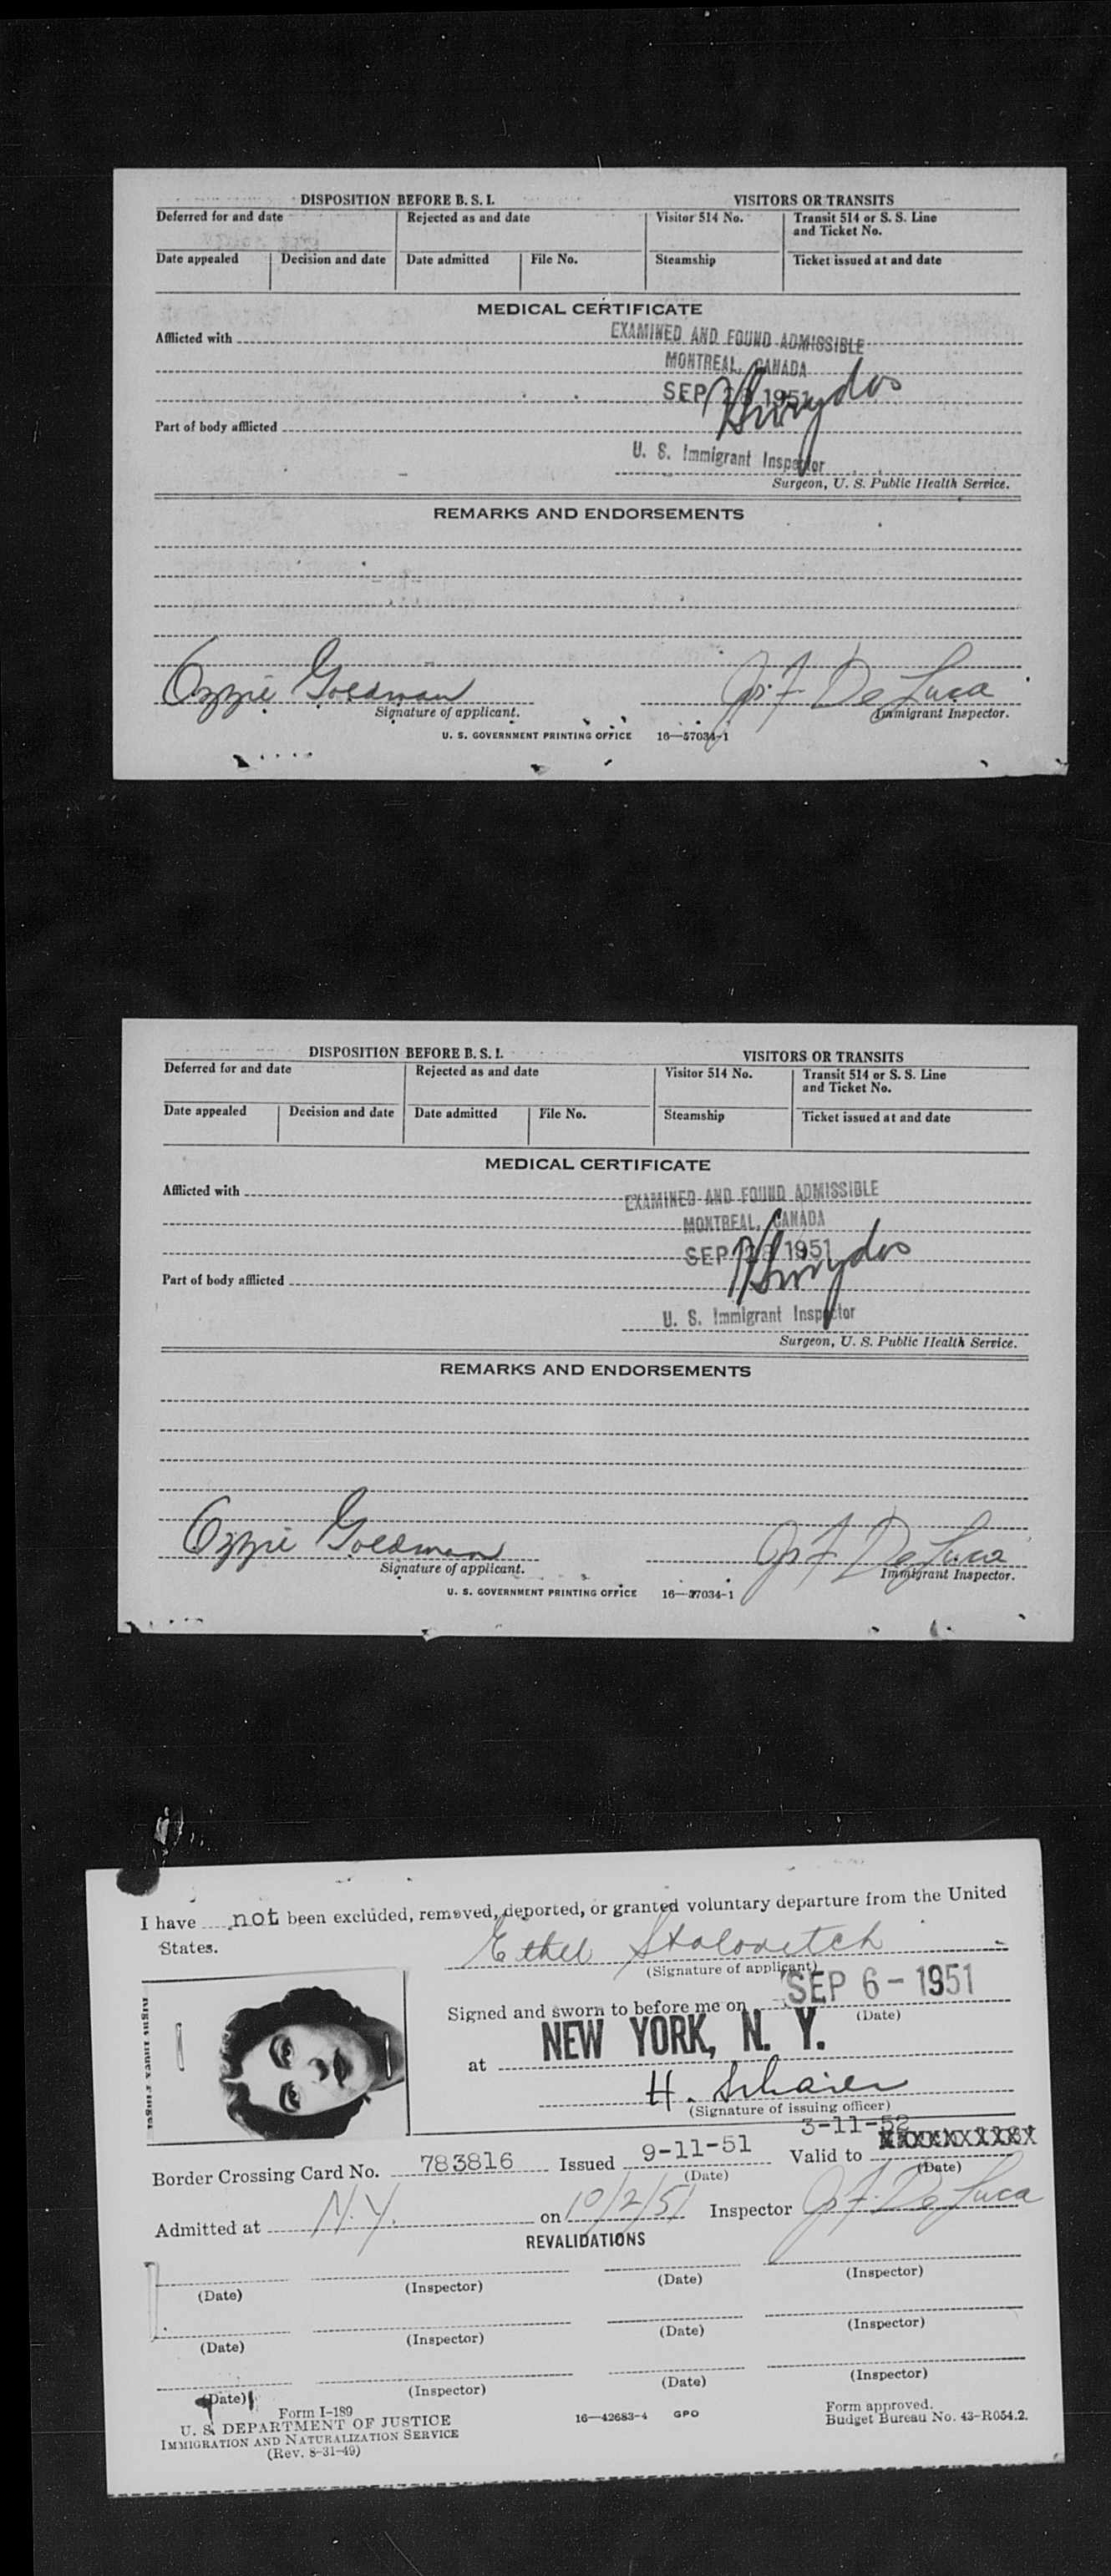 DISPOSITION BEFORE B. S. I. VISITORS OR TRANSITS
Deferred for and date Rejected as and date Visitor 514 No. Transit 514 or S. S. Line
and Ticket No.
Date appealed Decision and date Date admitted File No. Steamship Ticket issued at and date
MEDICAL CERTIFICATE
Afflicted with EXAMINED AND FOUND ADMISSIBLE
MONTREAL, CANADA
SEP 1951
Part of body afflicted
U. S. Immigrant Inspector
Surgeon, U. S. Public Health Service.
REMARKS AND ENDORSEMENTS
Ozzie Goldman Jos F De Luca
Signature of applicant. Immigrant Inspector.
U. S. GOVERNMENT PRINTING OFFICE 16—57034-1
DISPOSITION BEFORE B. S. I. VISITORS OR TRANSITS
Deferred for and date Rejected as and date Visitor 514 No. Transit 514 or S. S. Line
and Ticket No.
Date appealed Decision and date Date admitted File No. Steamship Ticket issued at and date
MEDICAL CERTIFICATE
Afflicted with EXAMINED AND FOUND ADMISSIBLE
MONTREAL, CANADA
SEP 1951
Part of body afflicted
U. S. Immigrant Inspector
Surgeon, U. S. Public Health Service.
REMARKS AND ENDORSEMENTS
Ozzie Goldman Jos F De Luca
Signature of applicant. Immigrant Inspector.
U. S. GOVERNMENT PRINTING OFFICE 16—57034-1
I have not been excluded, removed, deported, or granted voluntary departure from the United
States. Ethel Stolovitch
(Signature of applicant)
Signed and sworn to before me on SEP 6 - 1951
(Date)
at NEW YORK, N. Y.
H.
(Signature of issuing officer)
3-11-52
Border Crossing Card No. 783816 Issued 9-11-51 Valid to
(Date) (Date)
Admitted at N.Y. on 10/2/51 Inspector Jos F. De Luca
REVALIDATIONS
(Date) (Inspector) (Date) (Inspector)
(Date) (Inspector) (Date) (Inspector)
(Date) (Inspector) (Date) (Inspector)
Form I-189
U. S. DEPARTMENT OF JUSTICE
IMMIGRATION AND NATURALIZATION SERVICE
(Rev. 8-31-49)
16—42683-4 GPO
Form approved.
Budget Bureau No. 43-R054.2.